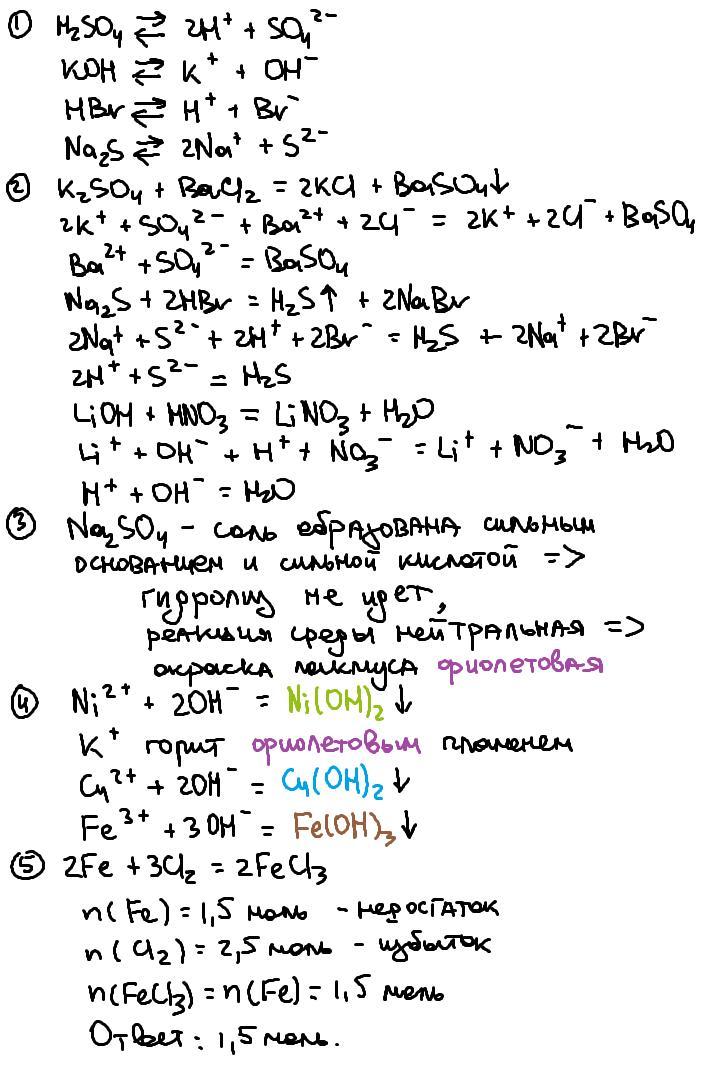 ① H₂SO₄ ⇄ 2H⁺ + SO₄²⁻
KOH ⇄ K⁺ + OH⁻
HBr ⇄ H⁺ + Br⁻
Na₂S ⇄ 2Na⁺ + S²⁻
② K₂SO₄ + BaCl₂ = 2KCl + BaSO₄↓
2K⁺ + SO₄²⁻ + Ba²⁺ + 2Cl⁻ = 2K⁺ + 2Cl⁻ + BaSO₄
Ba²⁺ + SO₄²⁻ = BaSO₄
Na₂S + 2HBr = H₂S↑ + 2NaBr
2Na⁺ + S²⁻ + 2H⁺ + 2Br⁻ = H₂S + 2Na⁺ + 2Br⁻
2H⁺ + S²⁻ = H₂S
LiOH + HNO₃ = LiNO₃ + H₂O
Li⁺ + OH⁻ + H⁺ + NO₃⁻ = Li⁺ + NO₃⁻ + H₂O
H⁺ + OH⁻ = H₂O
③ Na₂SO₄ - соль образована сильным
основанием и сильной кислотой =>
гидролиз не идет,
реакция среды нейтральная =>
окраска лакмуса фиолетовая
④ Ni²⁺ + 2OH⁻ = Ni(OH)₂↓
K⁺ горит фиолетовым пламенем
Cu²⁺ + 2OH⁻ = Cu(OH)₂↓
Fe³⁺ + 3OH⁻ = Fe(OH)₃↓
⑤ 2Fe + 3Cl₂ = 2FeCl₃
n(Fe) = 1,5 моль - недостаток
n(Cl₂) = 2,5 моль - избыток
n(FeCl₃) = n(Fe) = 1,5 моль
Ответ: 1,5 моль.